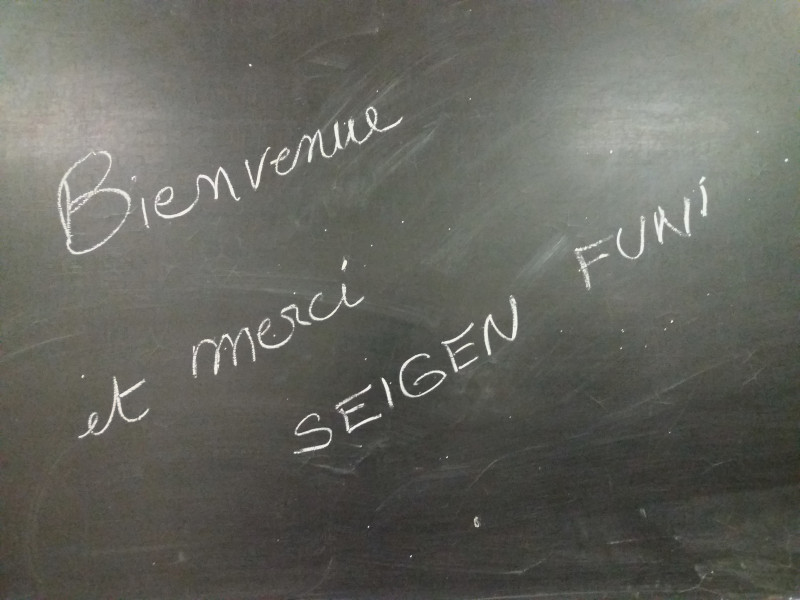 Bienvenue
et merci
SEIGEN FUNi